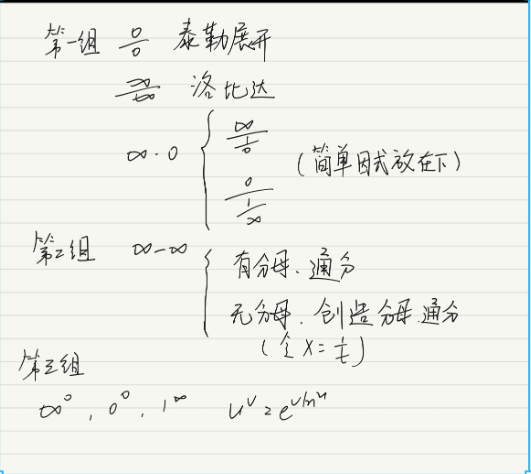 第一组 0/0 泰勒展开
∞/∞ 洛比达
∞·0 { ∞/(1/0)
(简单因式放在下)
0/(1/∞)
第二组 ∞-∞ { 有分母、通分
无分母、创造分母、通分
(令 x=1/t)
第三组
∞⁰, 0⁰, 1^∞ u^v = e^{v ln u}